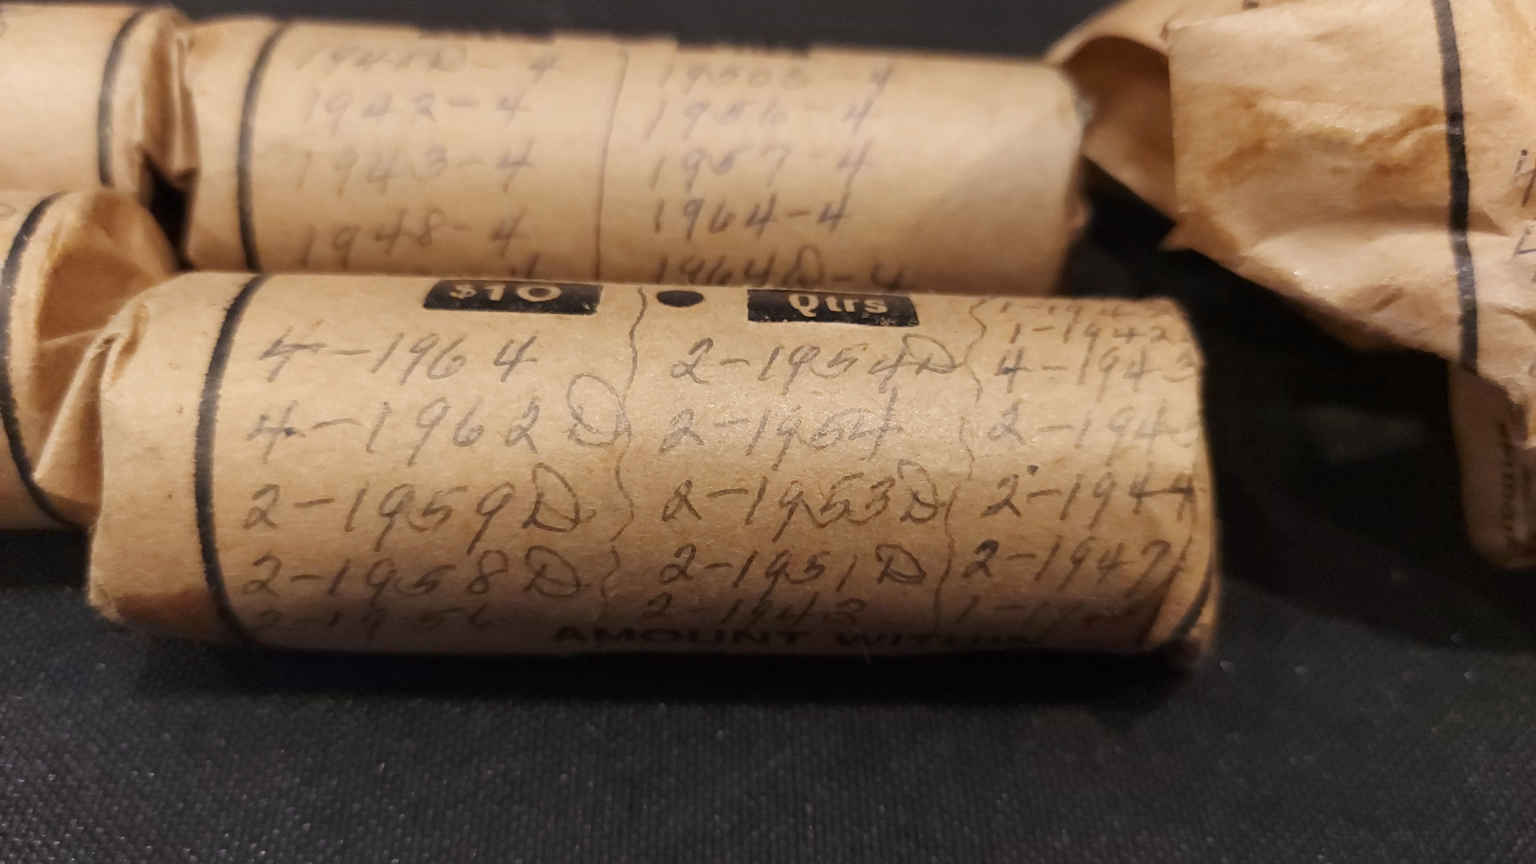 1942 - 4
1943 - 4
1948 - 4
1956 - 4
1957 - 4
1964 - 4
1964D - 4
$10
Qtrs
4 - 1964
4 - 1962D
2 - 1959D
2 - 1958D
2 - 1956
2 - 1954D
2 - 1954
2 - 1953D
2 - 1951D
2 - 1943
1 - 1942
4 - 1943
2 - 1943
2 - 1944
2 - 1947
AMOUNT WITHIN